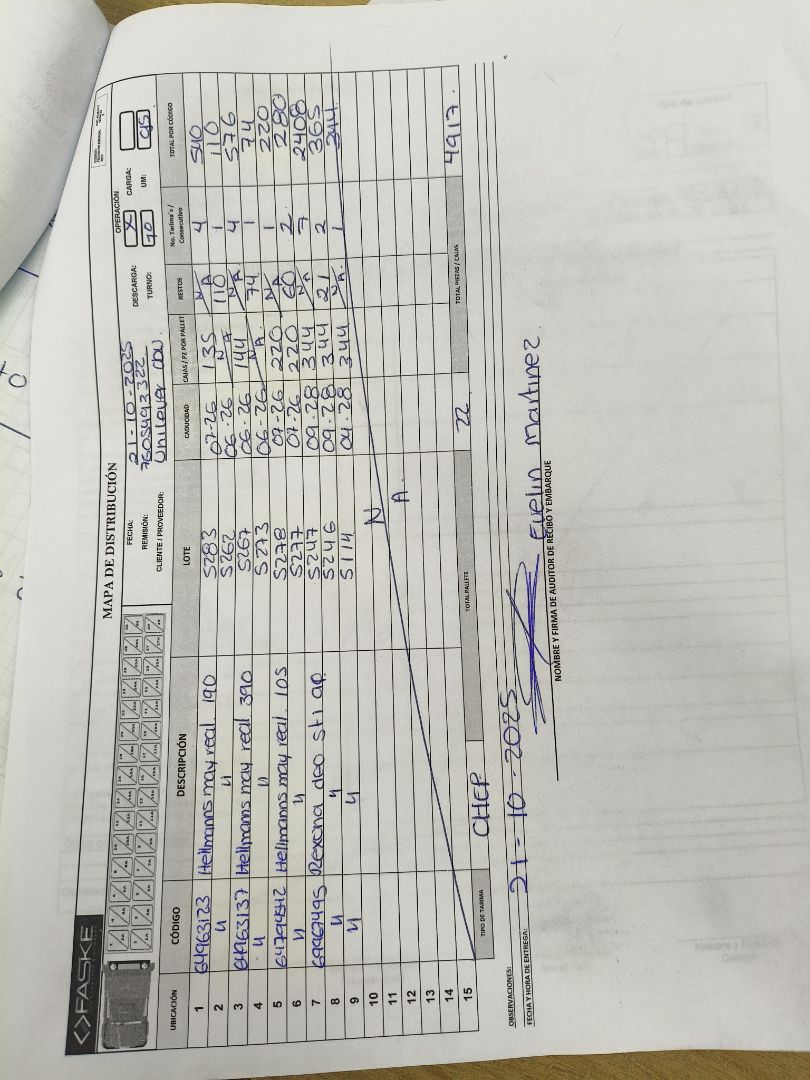 <>FASKE
MAPA DE DISTRIBUCIÓN
FECHA: 21-10-2025
REMISIÓN: 7605493322
CLIENTE / PROVEEDOR: Unilever
OPERACIÓN
DESCARGA: X CARGA:
TURNO: UM: cjs.
UBICACIÓN CÓDIGO DESCRIPCIÓN LOTE CADUCIDAD CAJAS / PZ POR PALLET RESTOS No. Tarima's / Consecutivo TOTAL POR CÓDIGO
1 64963123 Hellmanns may real 190 5283 07-26 135 N/A 4 540
2 " " 5262 06-26 N/A 110 1 110
3 64963137 Hellmanns may real 390 5267 06-26 144 N/A. 4 576
4 " " 5273 06-26 N/A. 74 1 74
5 Hellmanns may real. 105 5278 07-26 220 N/A 1 220
6 " " 5277 07-26 220 60 2 280
7 69967495 Rexona deo sti ap 5247 09-28 344 N/A 7 2408
8 " " 5246 09-28 344 21 2 365
9 " " 5114 04-28 344 N/A. 1 344.
10 N
11 A.
12
13
14
15
TIPO DE TARIMA CHEP TOTAL PALLETS 22 TOTAL PIEZAS / CAJAS 4917.
OBSERVACIONES:
FECHA Y HORA DE ENTREGA: 21-10-2025
Evelin Martinez.
NOMBRE Y FIRMA DE AUDITOR DE RECIBO Y EMBARQUE